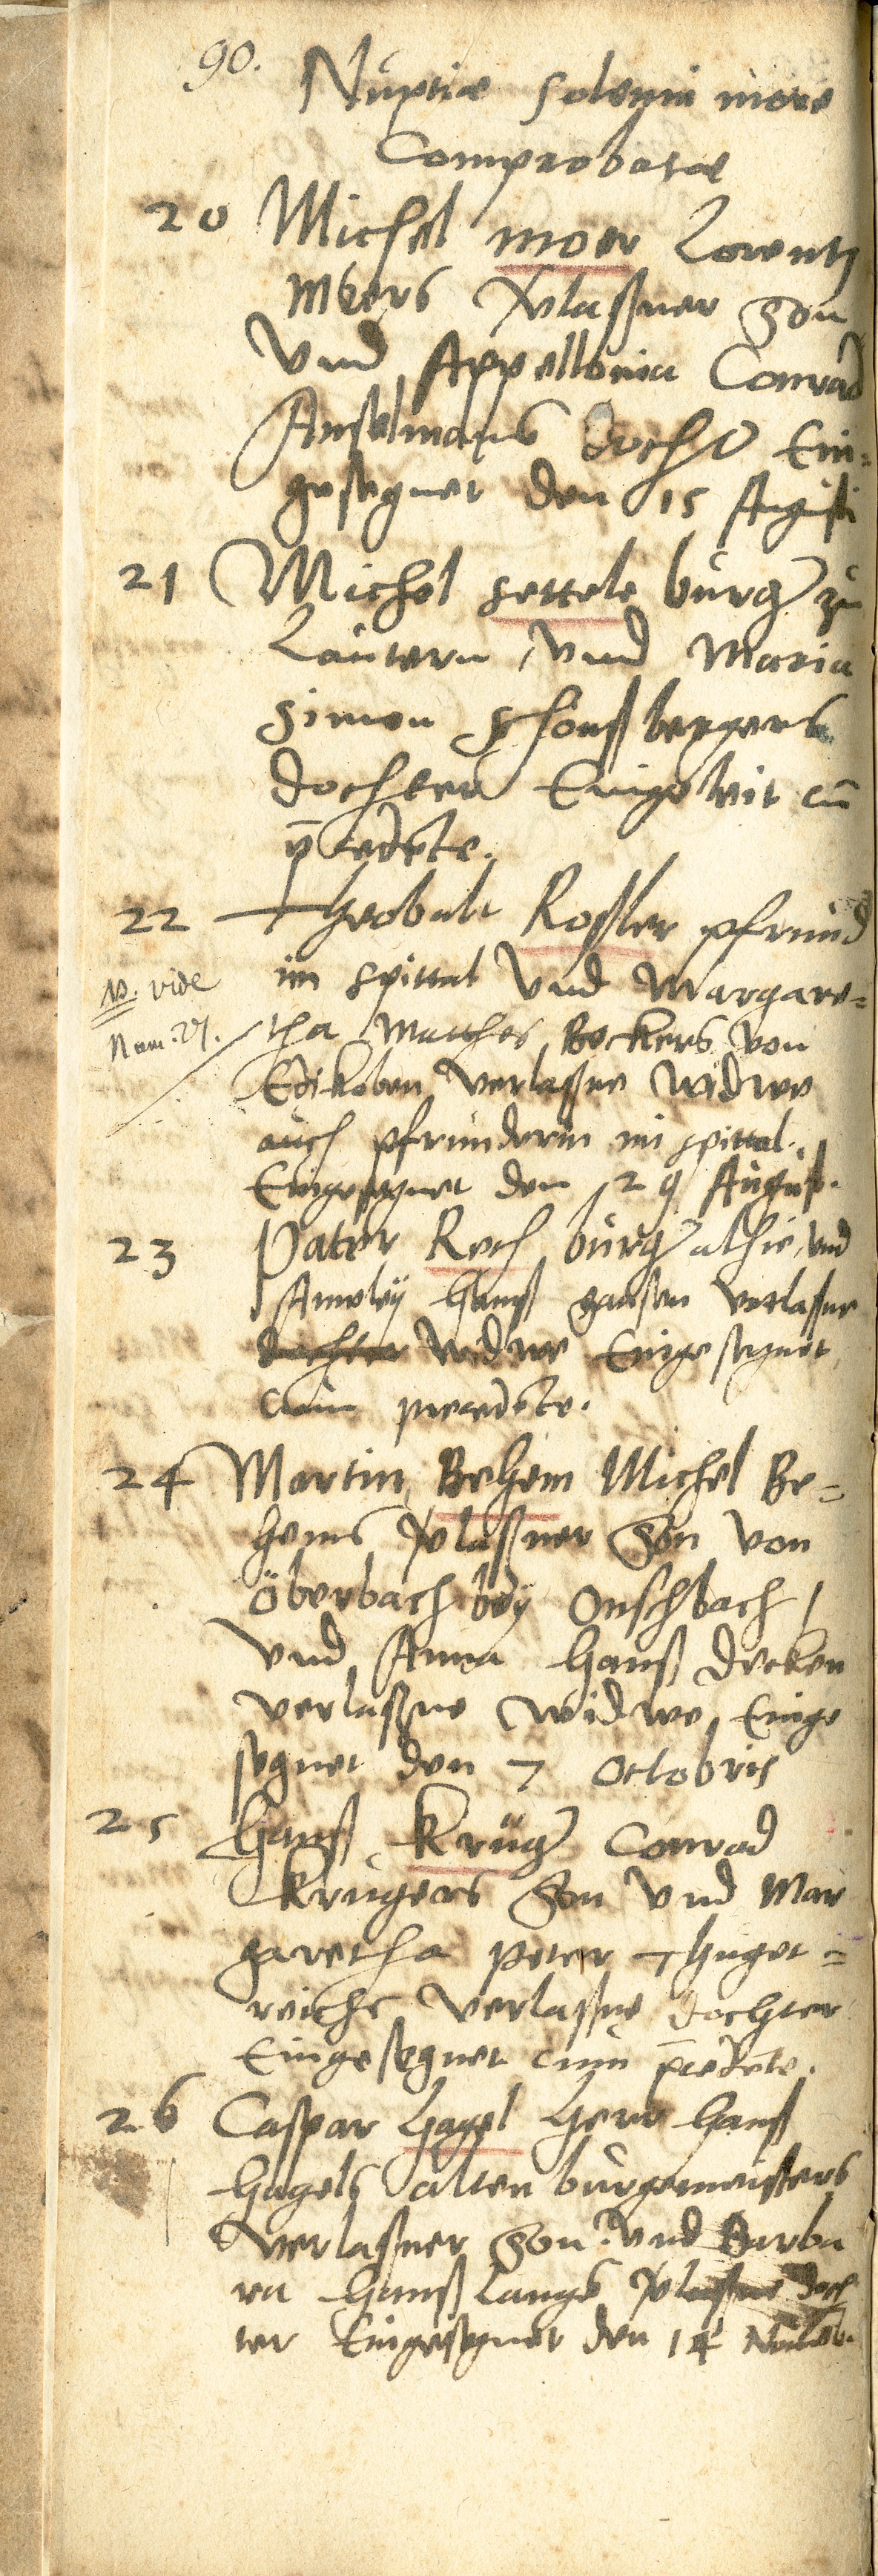 90.
Nuptiæ solenni more
Comprobatæ
20 Michel moer Lorentz
Moers Vlaßner Son
Vnd Appellonia Conrad
Anselmans docht Ein=
gesegnet den 15 Augusti
21 Michel settele burg zu
Lautern, Vnd Maria
Simon schonß bergers
dochter Eingeleit cū
p̄cedēte.
22 Theobalt Roßler pfrund
im spittal Vnd Margare=
NB. vide
Num. 27.
tha Matthes Beckers von
Edikoben Verlaßne Widwe
auch pfrunderin im spittal.
Eingesegnet den 29 August.
23 Pater Rech burg alhie, vnd
Ameleÿ Hanß gansen Verlaßne
dochter widwe Eingesegnet
cum precedēte.
24 Martin Behem Michel Be=
hems Vlaßner Son von
Öberbach beÿ Onschbach,
Vnd Anna Hanß Decken
Verlaßne Widwe, Einge
segnet den 7 Octobris
25 Hanß Krüg Conrad
Krugers Son Vnd Mar
garetha Peter Thuget=
reichs Verlaßne dochter
Eingesegnet cum p̄cedēte.
26 Caspar Hagel Herr Hanß
Hagels alten burgemeisters
Verlaßner Son. Vnd Barba
ra Hanß Langs Vlaßne doch
ter Eingesegnet den 14 Nouēb.